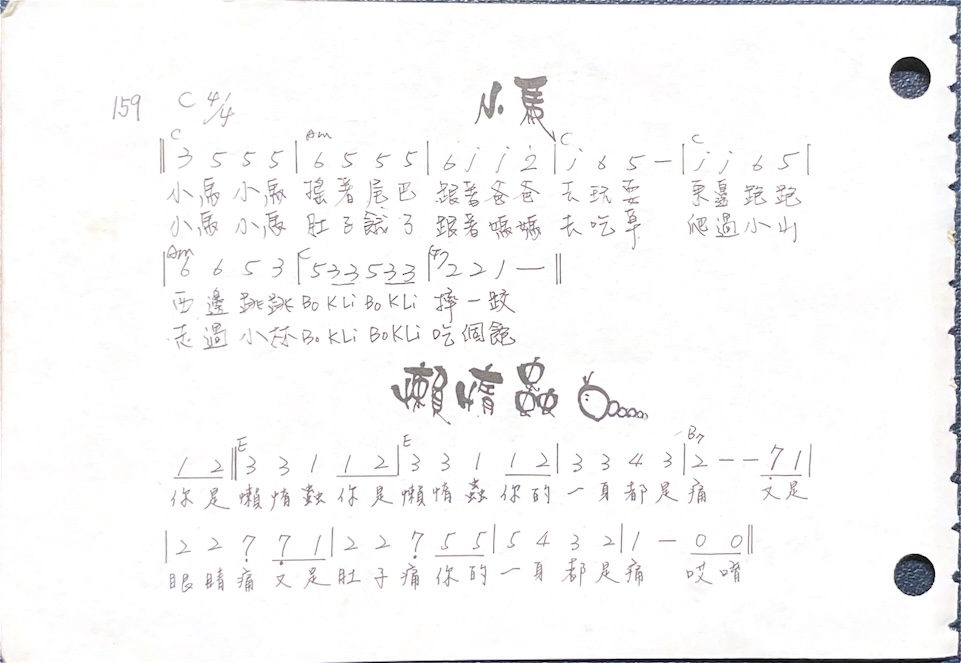 小馬
159 C 4/4
C Am C C
‖ 3 5 5 5 | 6 5 5 5 | 6 i i 2̇ | i 6 5 — | i i 6 5 |
小馬小馬 搖著尾巴 跟著爸爸 去玩耍 東邊跑跑
小馬小馬 肚子餓了 跟著媽媽 去吃草 爬過小山
Am C G7
| 6 6 5 3 | 5 3 3 5 3 3 | 2 2 1 — ‖
西邊跳跳 BoKLi BoKLi 摔一跤
走過小林 BoKLi BoKLi 吃個飽
懶惰蟲
E E B7
1 2 ‖ 3 3 1 1 2 | 3 3 1 1 2 | 3 3 4 3 | 2 — — 7̣ 1 |
你是懶惰蟲你是懶惰蟲 你的一身都是痛 又是
| 2 2 7̣ 7̣ 1 | 2 2 7̣ 5 5 | 5 4 3 2 | 1 — 0 0 ‖
眼睛痛 又是肚子痛 你的一身都是痛 哎唷